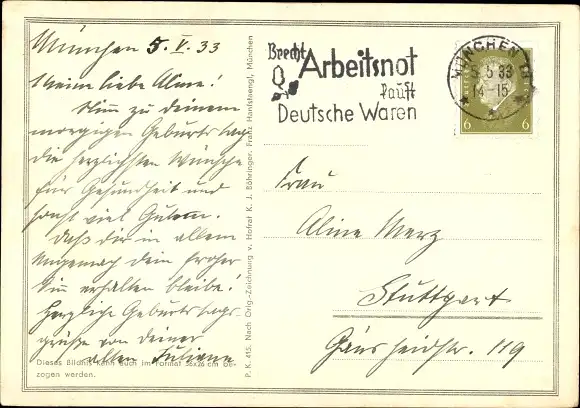 München 5. V. 33
Meine liebe Aline!
Nimm zu deinem
morgigen Geburtstag
die herzlichsten Wünsche
für Gesundheit und
sonst viel Gutem.
Daß dir in allem
Ungemach dein froher
Sinn erhalten bleibe.
Herzliche Geburtstags
grüße von deiner
alten Juliane
Dieses Bildnis kann auch im Format 36x26 cm be-
zogen werden.
P. K. 415. Nach Orig.-Zeichnung v. Hofrat K. J. Böhringer. Franz Hanfstaengl, München
Brecht
Arbeitsnot
kauft
Deutsche Waren
MÜNCHEN
5.5.33
14-15
6 6
Frau
Aline Merz
Stuttgart
Gänsheidstr. 119